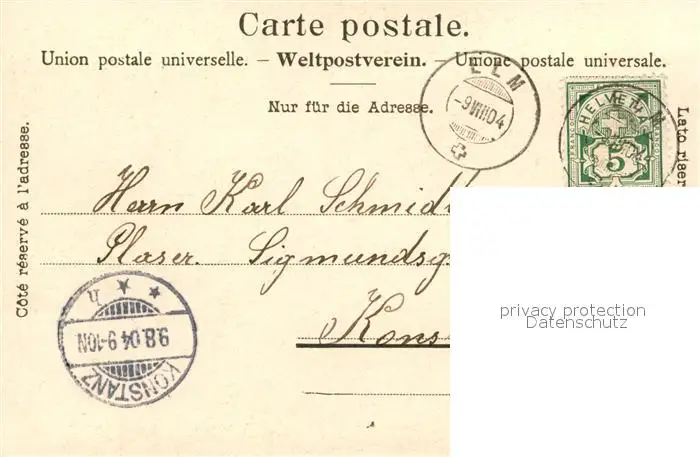 Carte postale.
Union postale universelle. – Weltpostverein. – Unione postale universale.
Nur für die Adresse.
Côté réservé à l'adresse.
Lato riser
ELM
-9.VIII.04
HELVETIA
5
Herrn Karl Schmid
Glaser. Sigmundsg
Kons
KONSTANZ
9.8.04.9-10N
privacy protection
Datenschutz